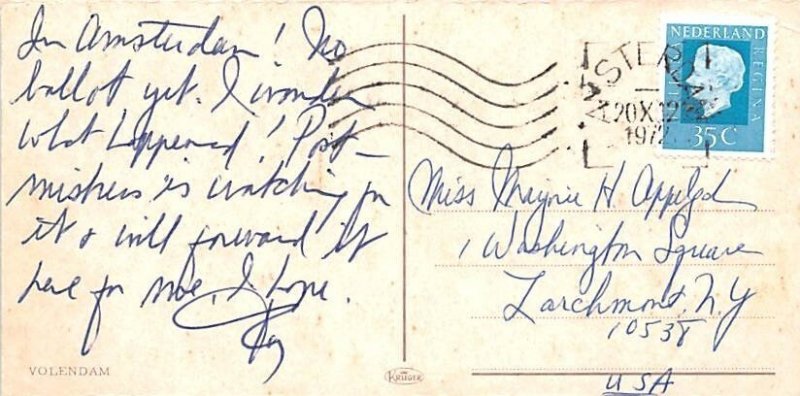 In Amsterdam! No
ballot yet. I wonder
what happened! Post-
mistress is watching for
it & will forward it
here for me, I hope.
VOLENDAM
KRUGER
AMSTERDAM
20X.12
1972
NEDERLAND
REGINA
35C
Miss H. Appleford
1 Washington Square
Larchmont, N.Y
10538
USA